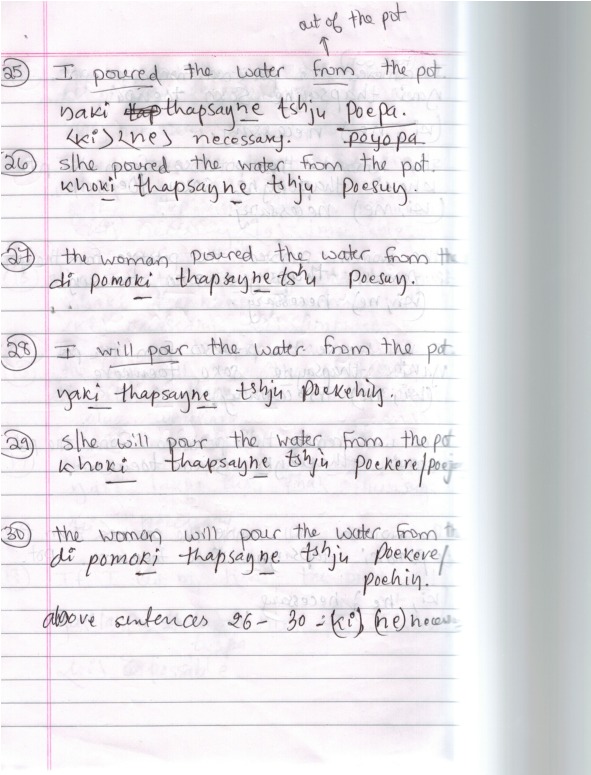 out of the pot
25 I poured the water from the pot
naki thapsayne tshju poepa.
<ki> <ne> necessary. poyopa
26 s/he poured the water from the pot.
khoki thapsayne tshju poesuy.
27 the woman poured the water from th
di pomoki thapsayne tshu poesuy.
28 I will pour the water from the pot
yaki thapsayne tshju poekehiy.
29 s/he will pour the water from the pot
khoki thapsayne tshju poekere/poe
30 the woman will pour the water from th
di pomoki thapsayne tshju poekere/
poehiy.
above sentences 26 - 30 - (ki) (ne) neces